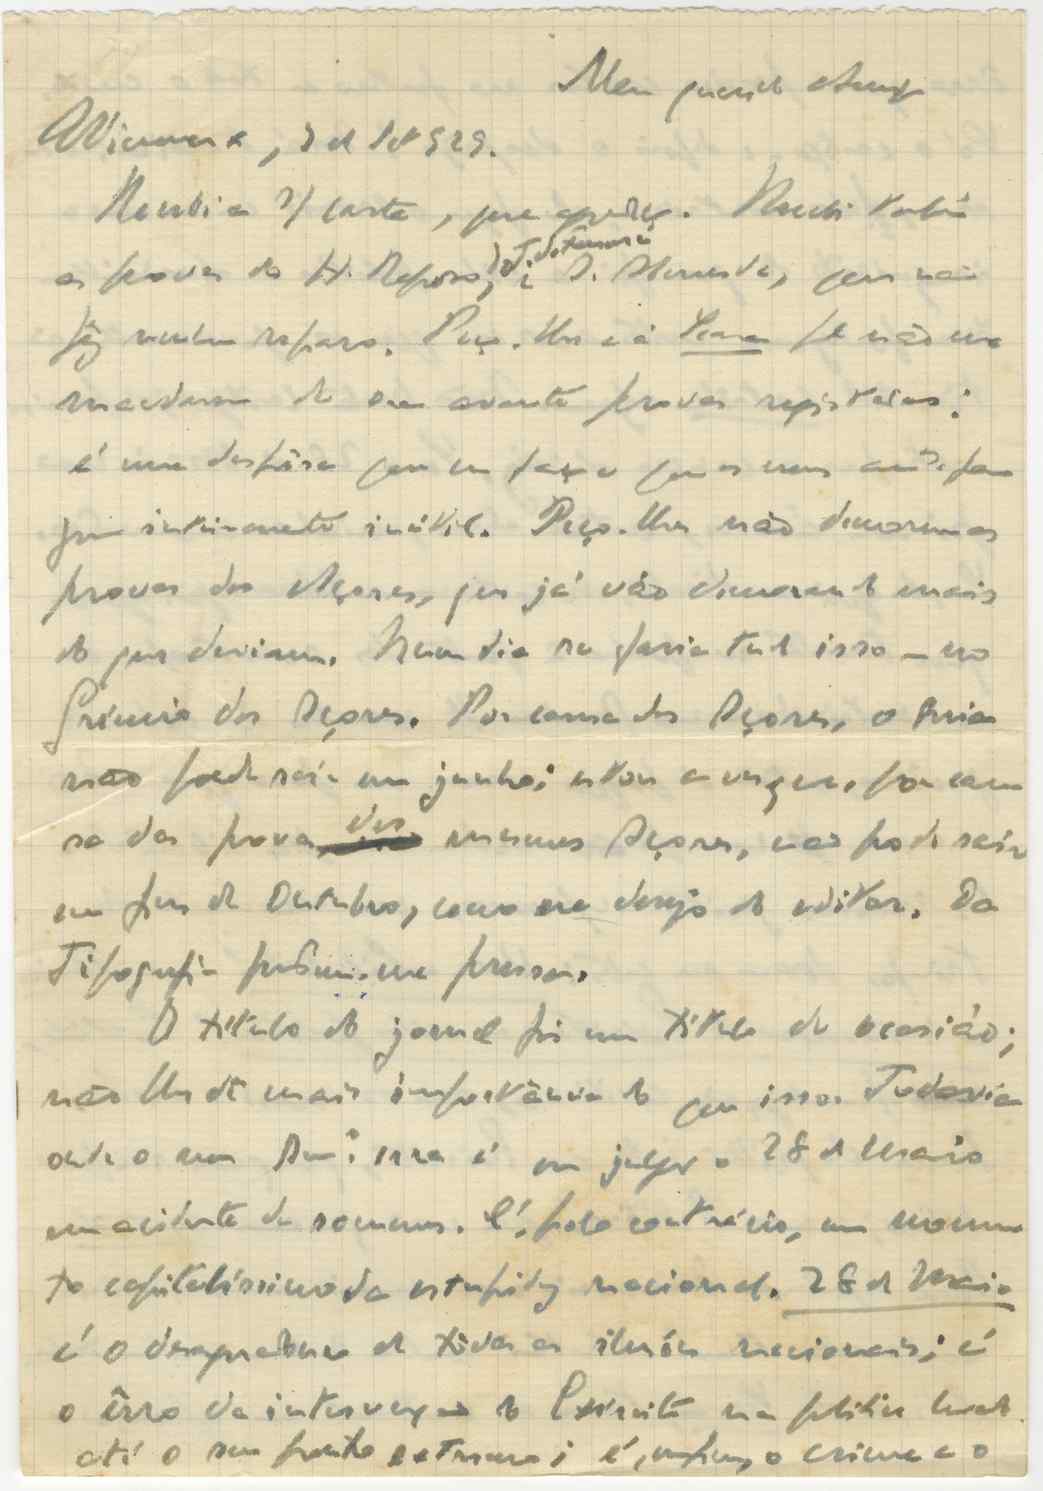 Meu querido Amigo
Vienne, 7 de Set 929.
Recebi a s/ carta, que agradeço. Recebi também
as provas do H. Raposo, e J. Almeida, que não
fez nenhum reparo. Peço-lhe e à Seara q não me
mandem de ora avante provas registadas:
é uma despêsa que
inteiramente inútil. Peço-lhe não demorem as
provas dos Açores, que já vão demorando mais
do que deviam. Num dia se faria tudo isso – no
Grémio dos Açores. Por causa dos Açores, o
não pode sair em junho; estou a ver que, por cau
sa das provas dos mesmos Açores, não pode sair
em fins de Outubro, como era desejo do editor. Da
Tipografia pedem-me pressa.
O título do jornal foi um título de ocasião;
não lhe dê mais importância do que isso. Todavia
onde o meu Am.º erra é em julgar o 28 de Maio
um acidente de somenos. É, pelo contrário, um momen
to capitalíssimo da estupidez nacional. 28 de Maio
é o desaguadouro de tôdas as ilusões nacionais; é
o êrro da intervenção do Exército na política levado
até o seu ponto extremo; é, enfim, o crime e o